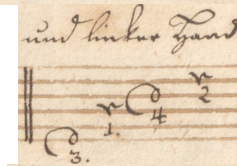 und linker Hand
3. 1. 4 2